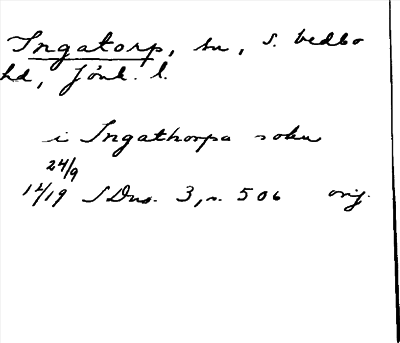 Ingatorp, sn, S. Vedbo
hd, Jönk. l.
i Ingathorpa sokn
24/9
1419 SDns. 3, s. 506 orig.